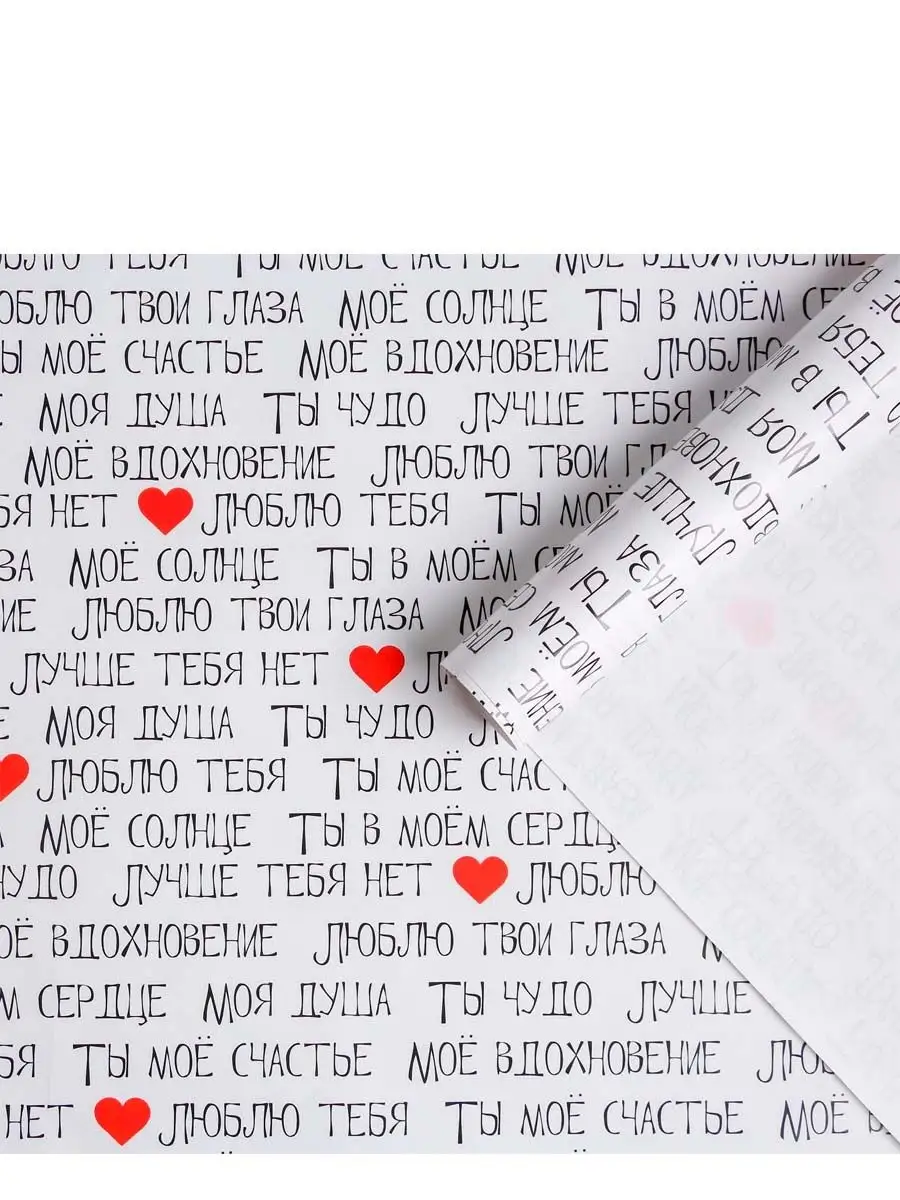 ТЕБЯ ТЫ МОЁ СЧАСТЬЕ МОЁ ВДОХНОВЕНИЕ
ЛЮБЛЮ ТВОИ ГЛАЗА МОЁ СОЛНЦЕ ТЫ В МОЁМ
МОЁ СЧАСТЬЕ МОЁ ВДОХНОВЕНИЕ ЛЮБЛЮ
МОЯ ДУША ТЫ ЧУДО ЛУЧШЕ ТЕБЯ
МОЁ ВДОХНОВЕНИЕ ЛЮБЛЮ ТВОИ
НЕТ ЛЮБЛЮ ТЕБЯ ТЫ МОЁ
МОЁ СОЛНЦЕ ТЫ В МОЁМ
ЛЮБЛЮ ТВОИ ГЛАЗА
ЛУЧШЕ ТЕБЯ НЕТ
МОЯ ДУША ТЫ ЧУДО
ЛЮБЛЮ ТЕБЯ ТЫ МОЁ
МОЁ СОЛНЦЕ ТЫ В МОЁМ СЕРДЦЕ
ЧУДО ЛУЧШЕ ТЕБЯ НЕТ ЛЮБЛЮ
ВДОХНОВЕНИЕ ЛЮБЛЮ ТВОИ ГЛАЗА
СЕРДЦЕ МОЯ ДУША ТЫ ЧУДО ЛУЧШЕ
ТЫ МОЁ СЧАСТЬЕ МОЁ ВДОХНОВЕНИЕ
НЕТ ЛЮБЛЮ ТЕБЯ ТЫ МОЁ СЧАСТЬЕ МОЁ